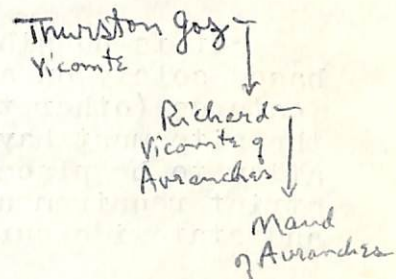 Thurston Goz
Vicomte
Richard
Vicomte of
Avranches
Maud
of Avranches